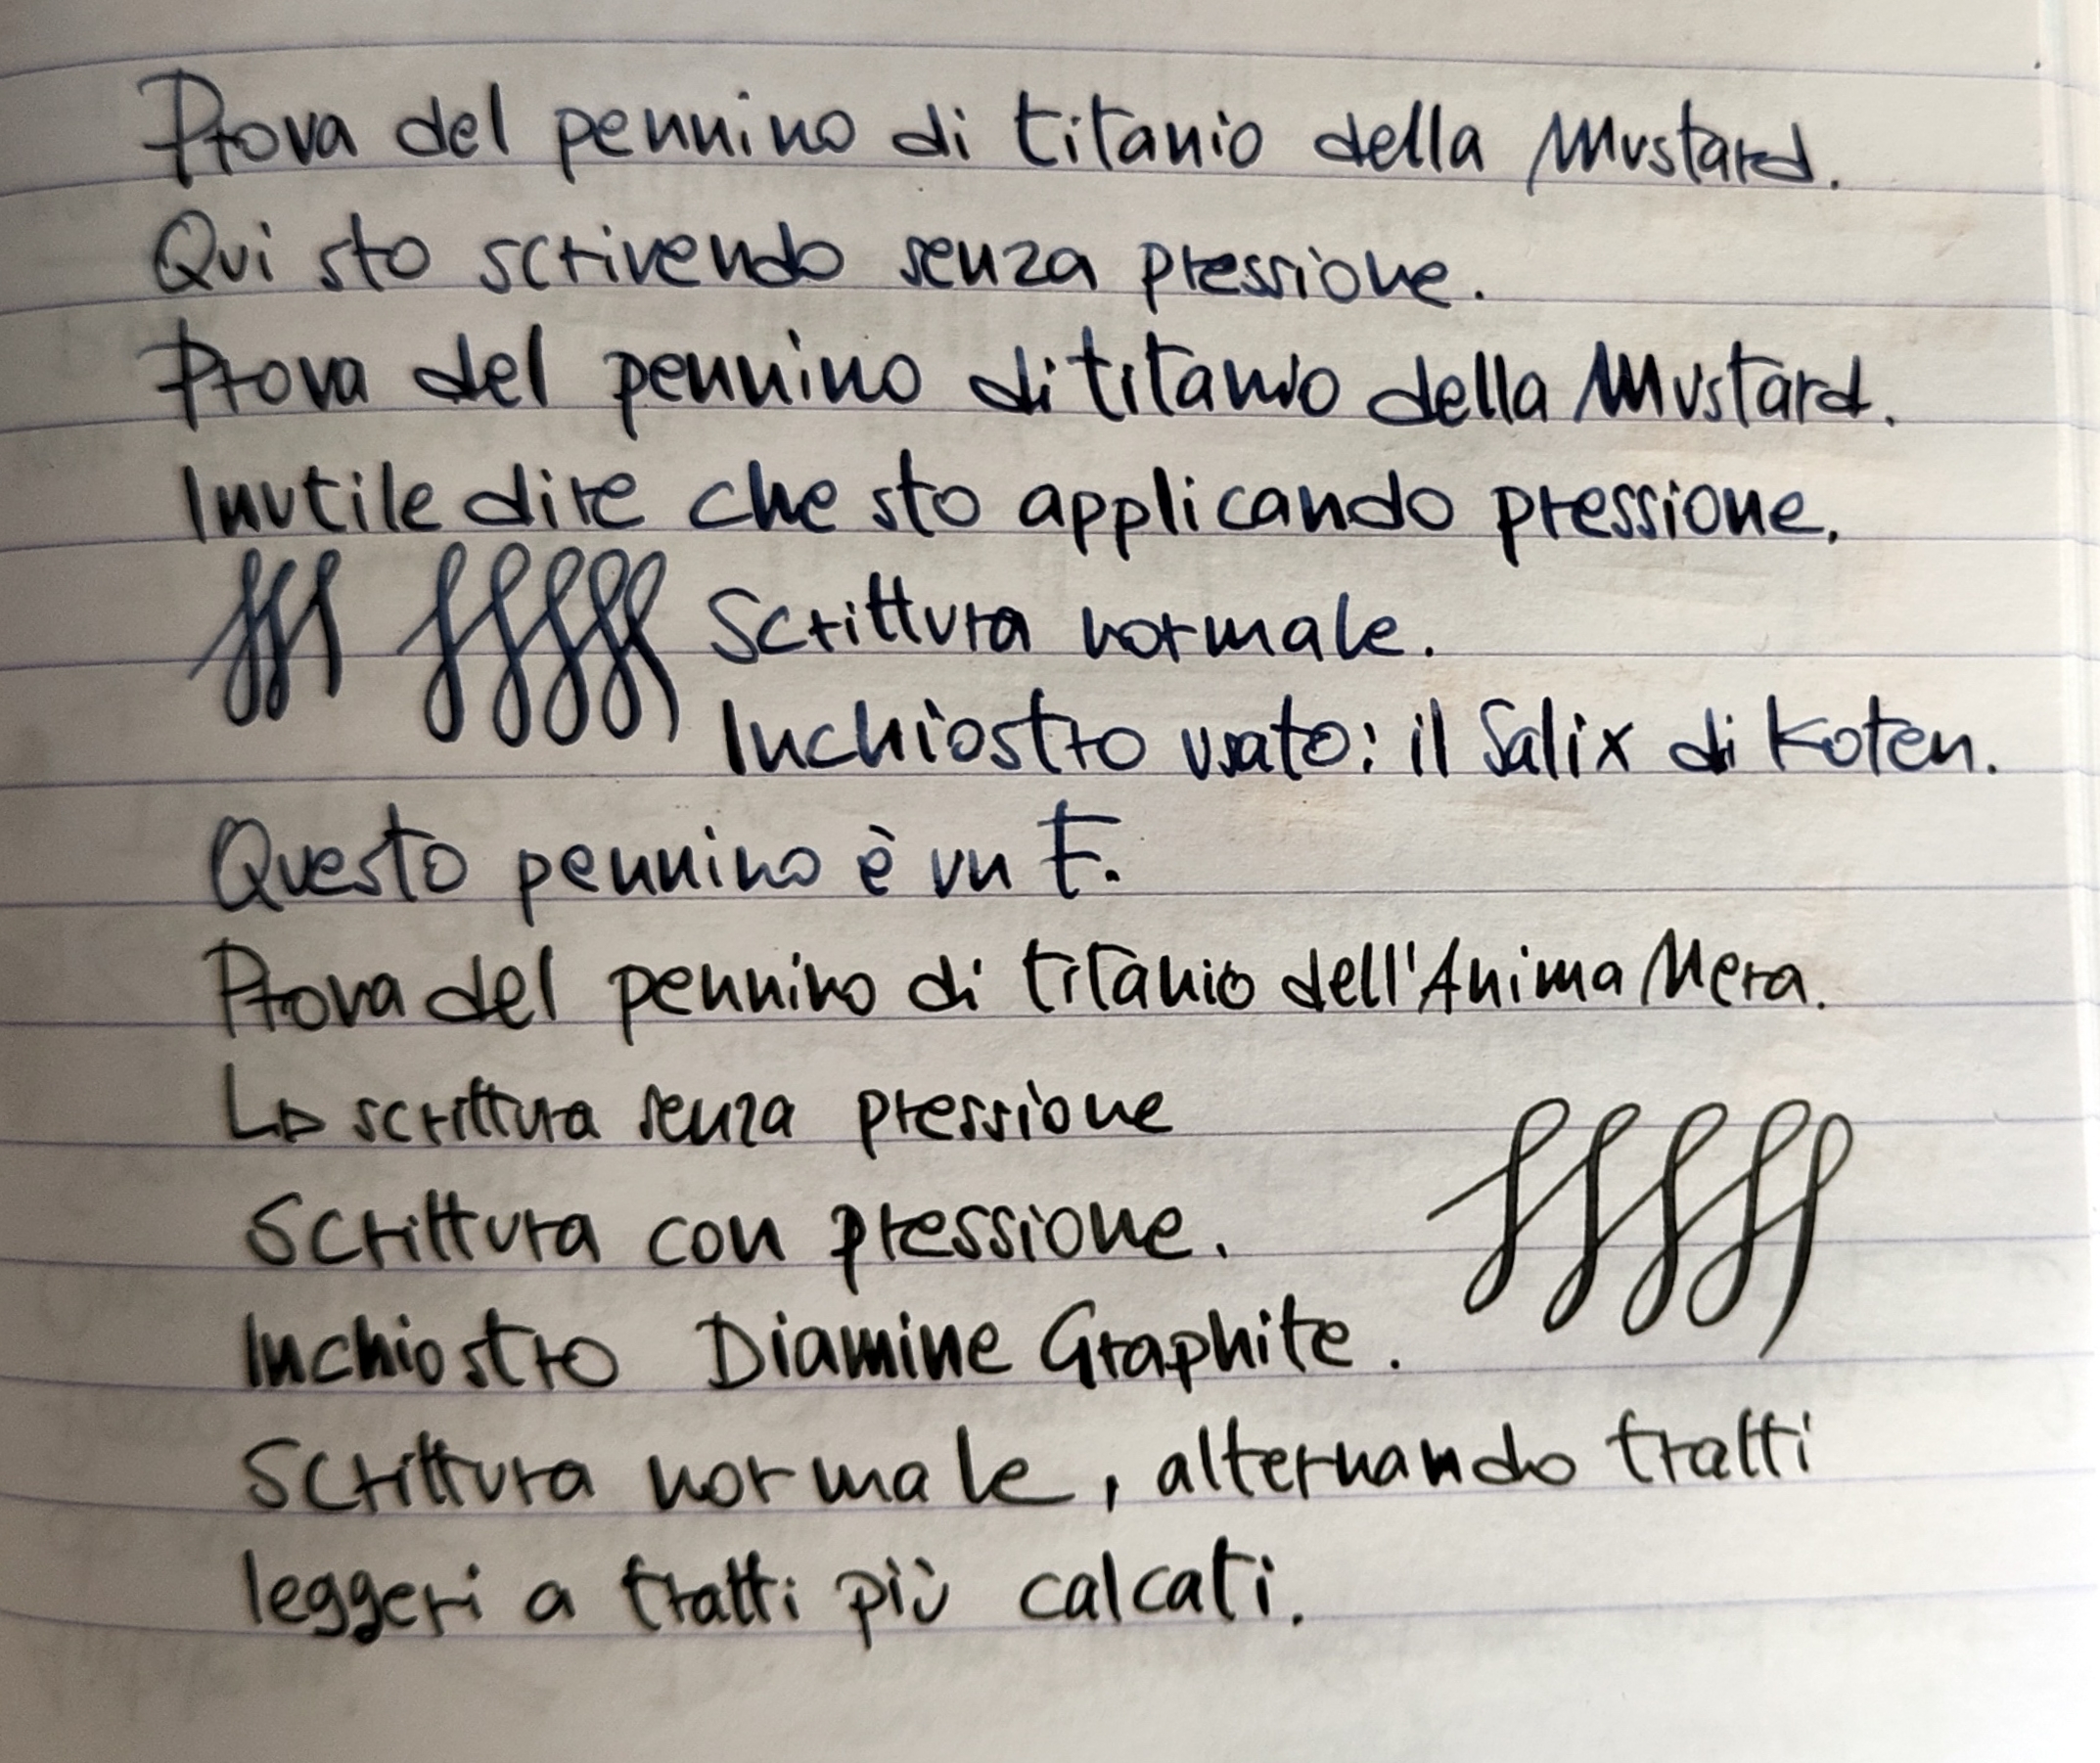 Prova del pennino di titanio della Mustard.
Qui sto scrivendo senza pressione.
Prova del pennino di titanio della Mustard.
Inutile dire che sto applicando pressione.
Scrittura normale.
Inchiostro usato: il Salix di Koten.
Questo pennino è un F.
Prova del pennino di titanio dell'Anima Mera.
La scrittura senza pressione
Scrittura con pressione.
Inchiostro Diamine Graphite.
Scrittura normale, alternando tratti
leggeri a tratti più calcati.